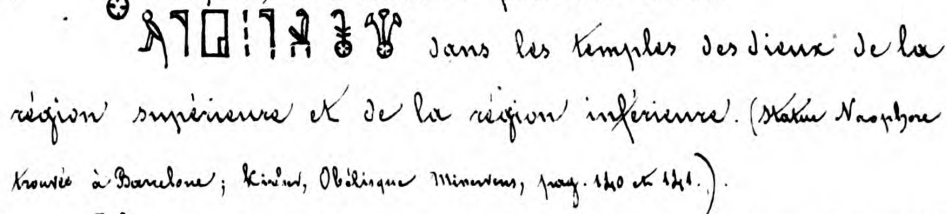 dans les temples des dieux de la
région supérieure et de la région inférieure. (Statue Naophore
trouvée à Barcelone; Kircher, Obélisque Minerveus, pag. 140 et 141.).